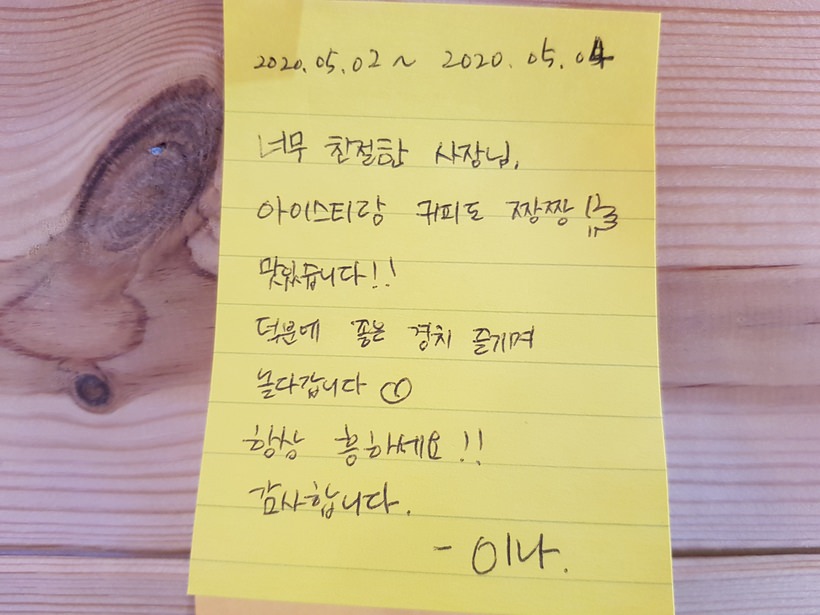 2020.05.02 ~ 2020.05.04
너무 친절한 사장님,
아이스티랑 커피도 짱짱
맛있습니다!!
덕분에 좋은 경치 즐기며
놀다갑니다
항상 흥하세요!!
감사합니다.
- 이나.